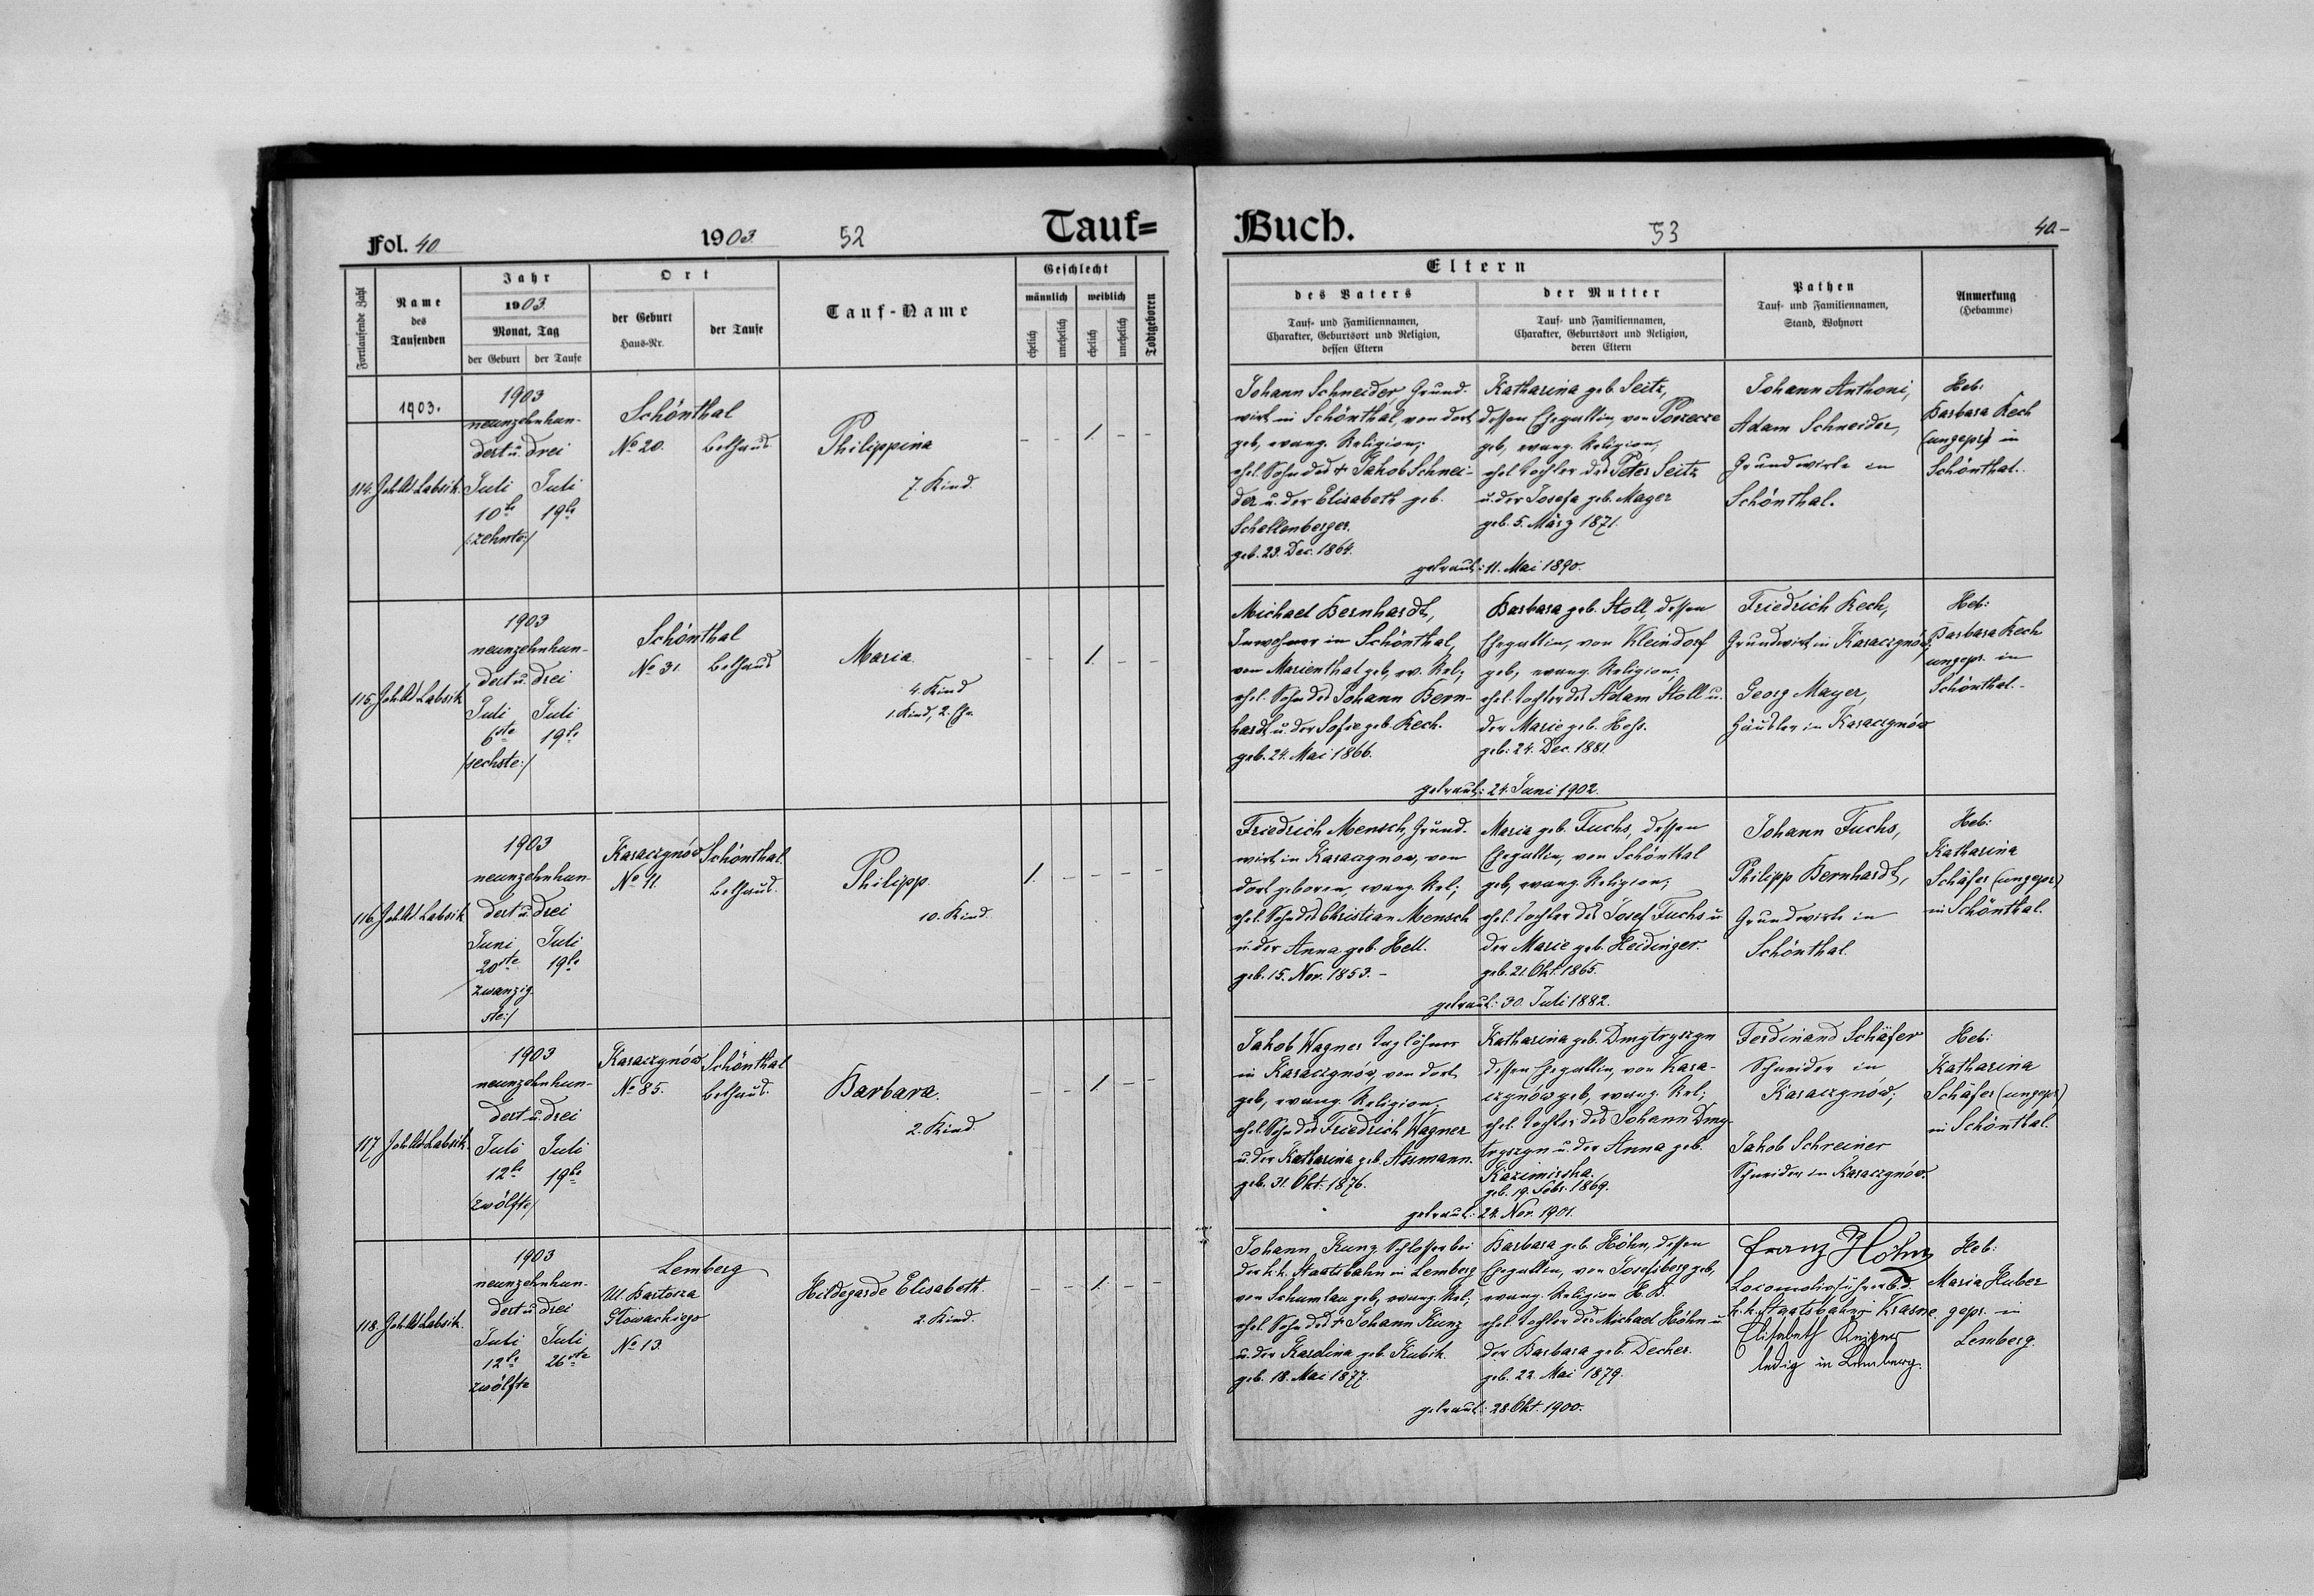 Fol. 40
1903
52
Tauf=
Fortlaufende Zahl
Name
des
Taufenden
Jahr
1903.
Monat, Tag
der Geburt
der Taufe
Ort
der Geburt
Haus-Nr.
der Taufe
Tauf-Name
Geschlecht
männlich
weiblich
ehelich
unehelich
ehelich
unehelich
Todtgeboren
1903.
114.
1903
neunzehnhun-
dert u. drei
Juli
Juli
10te
19te
/:zehnte:/
Schönthal
No 20.
Bethaus
Philippina
7. Kind.
- - 1. - -
115.
1903
neunzehnhun-
dert u. drei
Juli
Juli
6ste
19te
/sechste:/
Schönthal
No 31.
Bethaus
Maria.
4. Kind
1. Kind, 2. Ehe.
- - 1. - -
116.
1903
neunzehnhun-
dert u. drei
Juni
Juli
20ste
19te
zwanzig-
ste:/
Karaczynów
No 11.
Schönthal.
Bethaus.
Philipp.
10. Kind.
1. - - - -
117
1903
neunzehnhun-
dert u. drei
Juli
Juli
12te
19te
/zwölfte/
Karaczynów
No 85.
Schönthal
Bethaus.
Barbara.
2. Kind.
- - 1. - -
118.
1903
neunzehnhun-
dert u. drei
Juli
Juli
12te
26ste
zwölfte
Lemberg
Ul. Bartosza
Głowackiego
No 13.
Hildegarde Elisabeth.
2. Kind.
- - 1. - -
Buch.
53
40-
Eltern
des Vaters
Tauf- und Familiennamen,
Charakter, Geburtsort und Religion,
dessen Eltern
der Mutter
Tauf- und Familiennamen,
Charakter, Geburtsort und Religion,
deren Eltern
Pathen
Tauf- und Familiennamen,
Stand, Wohnort
Anmerkung
(Hebamme)
Johann Schneider, Grund-
wirt in Schönthal, von dort
geb, evang. Religion;
ehel. Sohn des + Jakob Schnei-
der u. der Elisabeth geb.
Schellenberger.
geb. 23. Dec. 1864.
Katharina geb. Seitz,
dessen Ehegattin, von Porzecze
geb, evang. Religion,
ehel. Tochter des Peter Seitz
u. der Josefa geb. Mayer
geb. 5. März 1871.
getraut: 11. Mai 1890.
Johann Anthoni,
Adam Schneider,
Grundwirte in
Schönthal.
Heb:
Barbara Kech
(ungepr) in
Schönthal.
Michael Bernhardt,
Inwohner in Schönthal,
von Marienthal geb, ev. Rel;
ehel. Sohn des Johann Bern-
hardt u. der Sofie geb. Kech.
geb. 24. Mai 1866.
Barbara geb. Stoll, dessen
Ehegattin, von Kleindorf
geb, evang. Religion;
ehel. Tochter des Adam Stoll u.
der Marie geb. Hess.
geb: 24. Dec. 1881.
getraut: 24. Juni 1902.
Friedrich Kech,
Grundwirt in Karaczynów;
Georg Mayer,
Häusler in Karaczynów
Heb:
Barbara Kech
ungepr. in
Schönthal.-
Friedrich Mensch, Grund-
wirt in Karaczynow, von
dort geboren, evang. Rel;
ehel. Sohn des Christian Mensch
u. der Anna geb. Hell.
geb. 15. Nov. 1853.-
Maria geb. Fuchs, dessen
Ehegattin, von Schönthal
geb, evang. Religion;
ehel. Tochter des Josef Fuchs u
der Marie geb. Heidinger.
geb. 21. Okt. 1865.
getraut: 30. Juli 1882.
Johann Fuchs,
Philipp Bernhardt,
Grundwirte in
Schönthal.
Heb:
Katharina
Schäfer (ungepr)
in Schönthal.
Jakob Wagner Taglöhner
in Karaczynów, von dort
geb, evang. Religion;
ehel. Sohn des Friedrich Wagner
u. der Katharina geb. Assmann.
geb. 31. Okt. 1876.
Katharina geb. Dmytryszyn
dessen Ehegattin, von Kara-
czynów geb, evang. Rel;
ehel. Tochter des Johann Dmy-
tryszyn u. der Anna geb.
Kazimirska.
geb. 19. Febr. 1869.
getraut: 24. Nov. 1901.
Ferdinand Schäfer
Schneider in
Karaczynów;
Jakob Schreiner
Schneider in Karaczynów.
Heb:
Katharina
Schäfer (ungepr)
in Schönthal.
Johann Kunz Schlosser bei
der k. k. Staatsbahn in Lemberg
von Schumlau geb, evang. Rel;
ehel. Sohn des + Johann Kunz
u. der Karolina geb. Kubik.
geb. 18. Mai 1877.
Barbara geb. Höhn, dessen
Ehegattin, von Josefsberg geb,
evang. Religion H. B.
ehel. Tochter des Michael Höhn u
der Barbara geb. Decker.
geb. 22. Mai 1879.
getraut: 28. Okt. 1900.
Franz Höhn
Locomotivführer b. d.
k. k. Staatsbahn in Krasne
Elisabeth
ledig in Lemberg.
Heb:
Maria Huber
gepr. in
Lemberg.